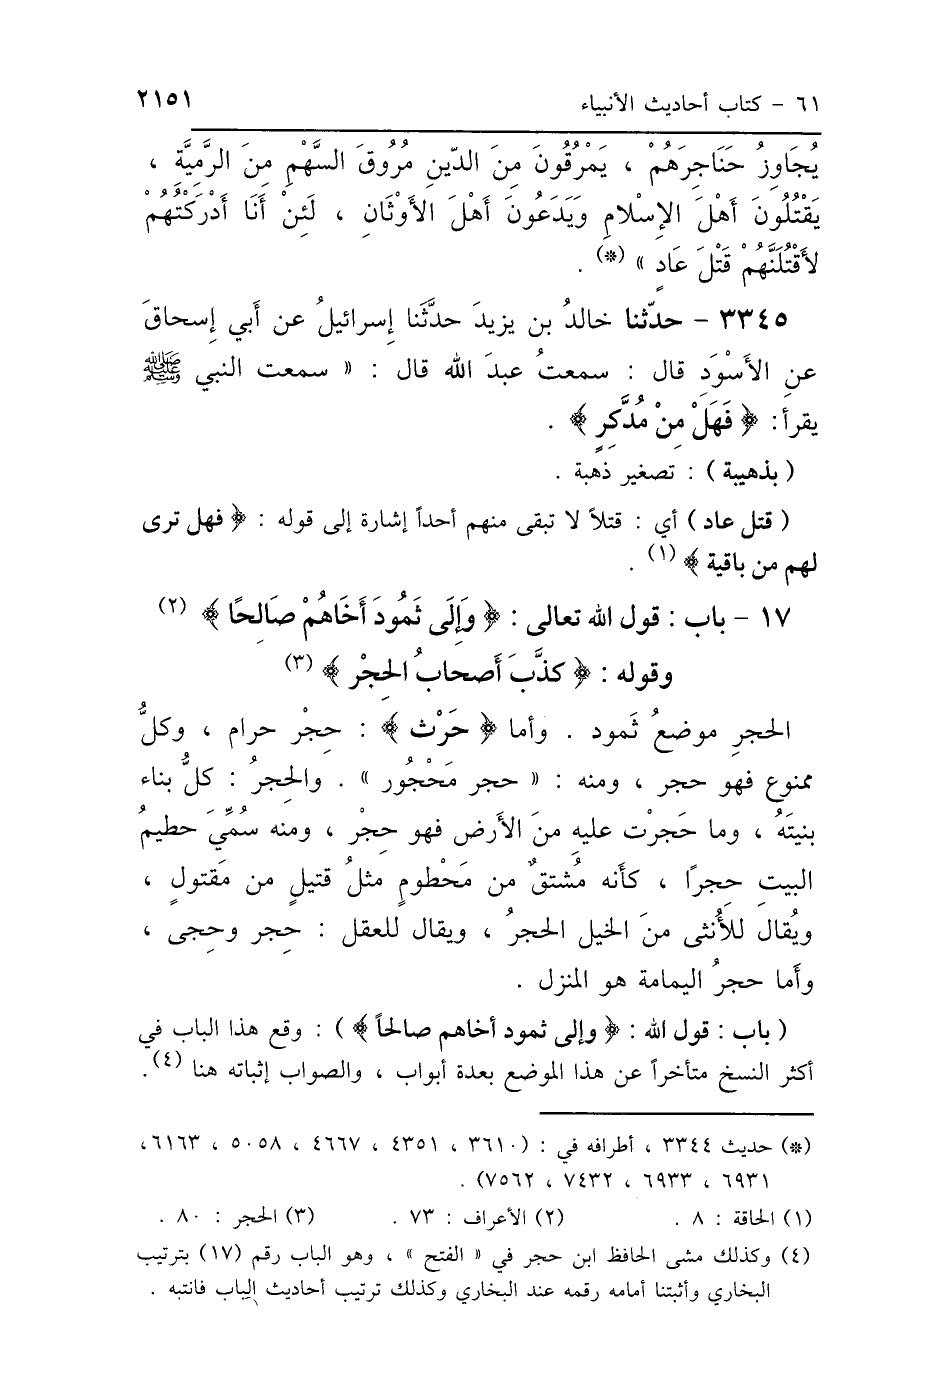 ٦١ - كتاب أحاديث الأنبياء ٢١٥١
يُجَاوِزُ حَنَاجِرَهُمْ ، يَمْرُقُونَ مِنَ الدِّينِ مُرُوقَ السَّهْمِ مِنَ الرَّمِيَّةِ ،
يَقْتُلُونَ أَهْلَ الإِسْلامِ وَيَدَعُونَ أَهْلَ الأَوْثَانِ ، لَئِنْ أَنَا أَدْرَكْتُهُمْ
لأَقْتُلَنَّهُمْ قَتْلَ عَادٍ » (*) .
٣٣٤٥ - حدّثنا خالدُ بن يزيدَ حدَّثَنا إِسرائيلُ عن أَبي إِسحاقَ
عنِ الأَسْوَدِ قال : سمعتُ عبدَ الله قال : « سمعت النبي ﷺ
يقرأ: ﴿ فَهَلْ مِنْ مُدَّكِرٍ ﴾ .
( بذهيبة ) : تصغير ذهبة .
( قتل عاد ) أي : قتلاً لا تبقى منهم أحداً إشارة إلى قوله : ﴿ فهل ترى
لهم من باقية ﴾ (١) .
١٧ - باب : قول الله تعالى : ﴿ وَإِلَى ثَمُودَ أَخَاهُمْ صَالِحًا ﴾ (٢)
وقوله : ﴿ كَذَّبَ أَصحابُ الحِجْرِ ﴾ (٣)
الحجرِ موضعُ ثَمود . وأما ﴿ حَرْث ﴾ : حِجْر حرام ، وكلُّ
ممنوع فهو حجر ، ومنه : « حجر مَحْجُور » . والحِجرُ : كلُّ بناء
بنيتَهُ ، وما حَجرْت عليهِ منَ الأَرض فهو حِجرْ ، ومنه سُمِّيَ حطيمُ
البيتِ حِجرًا ، كأَنه مُشتقٌ من مَحْطومٍ مثلُ قتيلٍ من مَقتولٍ ،
ويُقال للأُنثى منَ الخيل الحجرُ ، ويقال للعقل : حِجر وحِجى ،
وأَما حجرُ اليمامة هو المنزل .
( باب : قول الله : ﴿ وإلى ثمود أخاهم صالحاً ﴾ ) : وقع هذا الباب في
أكثر النسخ متأخراً عن هذا الموضع بعدة أبواب ، والصواب إثباته هنا (٤) .
(*) حديث ٣٣٤٤ ، أطرافه في : (٣٦١٠ ، ٤٣٥١ ، ٤٦٦٧ ، ٥٠٥٨ ، ٦١٦٣،
٦٩٣١ ، ٦٩٣٣ ، ٧٤٣٢ ، ٧٥٦٢) .
(١) الحاقة : ٨ . (٢) الأعراف : ٧٣ . (٣) الحجر : ٨٠ .
(٤) وكذلك مشى الحافظ ابن حجر في « الفتح » ، وهو الباب رقم (١٧) بترتيب
البخاري وأثبتنا أمامه رقمه عند البخاري وكذلك ترتيب أحاديث الباب فانتبه .